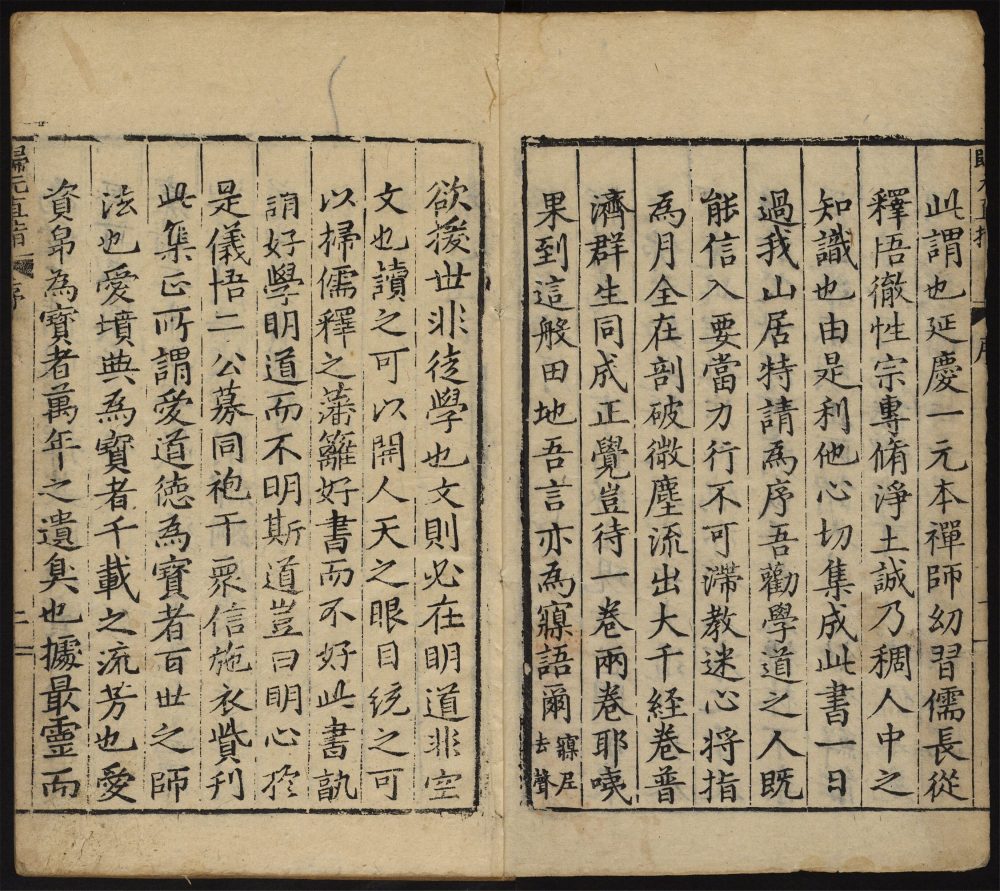 此謂也延慶一元本禪師幼習儒長從
釋悟徹性宗專脩淨土誠乃稠人中之
知識也由是利他心切集成此書一日
過我山居特請為序吾勸學道之人既
能信入要當力行不可滯教迷心將指
為月全在剖破微塵流出大千經卷普
濟群生同成正覺豈待一卷兩卷耶咦
果到這般田地吾言亦為寱語爾
寱尼
去聲
歸元直指 序
欲援世非徒學也文則必在明道非空
文也讀之可以開人天之眼目統之可
以掃儒釋之藩籬好書而不好此書孰
謂好學明道而不明斯道豈曰明心於
是儀悟二公募同袍干眾信施衣貲刊
此集正所謂愛道德為寶者百世之師
法也愛墳典為寶者千載之流芳也愛
資帛為寶者萬年之遺臭也據最靈而